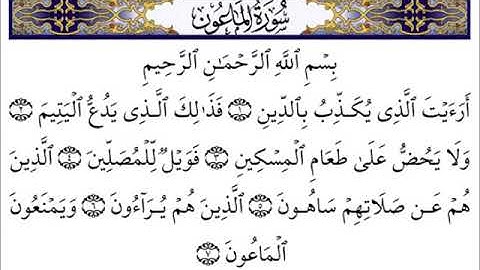 سُورَةُ الْمَاعُون
بِسْمِ ٱللَّهِ ٱلرَّحْمَٰنِ ٱلرَّحِيمِ
أَرَءَيْتَ ٱلَّذِى يُكَذِّبُ بِٱلدِّينِ ۝١ فَذَٰلِكَ ٱلَّذِى يَدُعُّ ٱلْيَتِيمَ ۝٢
وَلَا يَحُضُّ عَلَىٰ طَعَامِ ٱلْمِسْكِينِ ۝٣ فَوَيْلٌ لِّلْمُصَلِّينَ ۝٤ ٱلَّذِينَ
هُمْ عَن صَلَاتِهِمْ سَاهُونَ ۝٥ ٱلَّذِينَ هُمْ يُرَآءُونَ ۝٦ وَيَمْنَعُونَ
ٱلْمَاعُونَ ۝٧